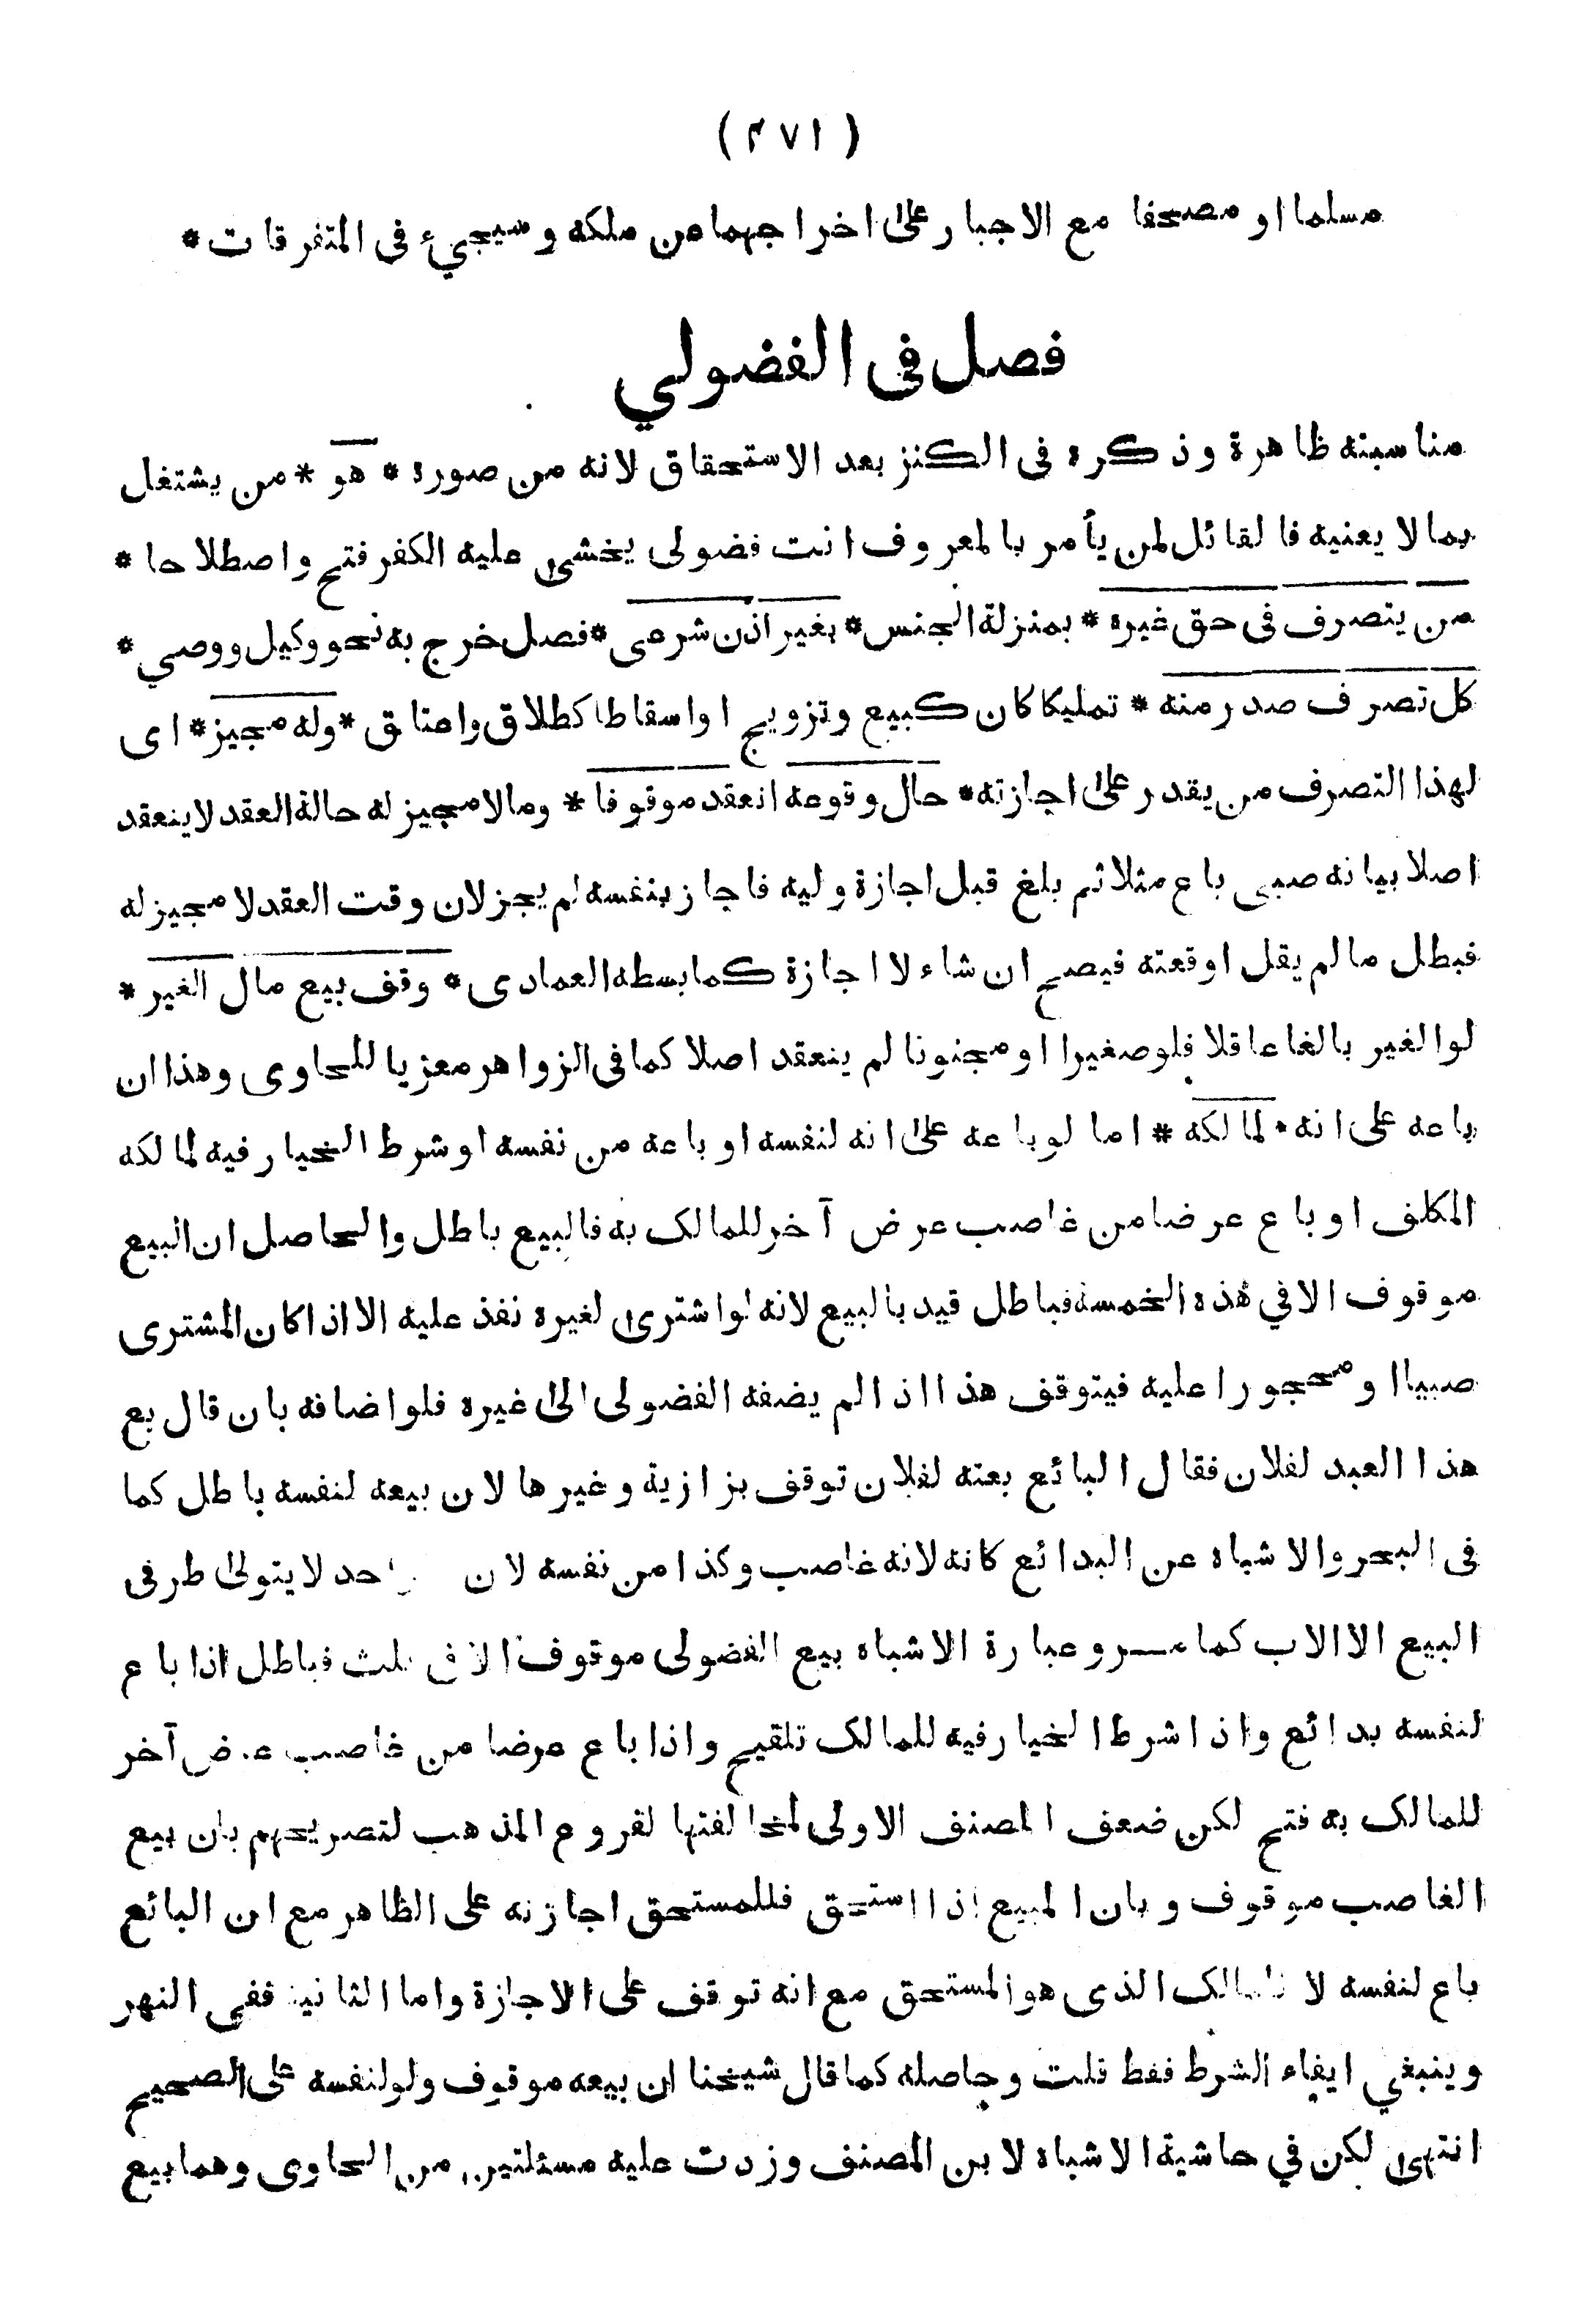 (٤٧١)
مسلما او مصحفا مع الاجبار على اخراجهما من ملكه وسيجيء في المتفرقات *
فصل في الفضولي
مناسبته ظاهرة وذكره في الكنز بعد الاستحقاق لانه من صوره * هو * من يشتغل
بما لا يعنيه فالقائل لمن يأمر بالمعروف انت فضولى يخشى عليه الكفر فتح واصطلاحا *
من يتصرف فى حق غيره * بمنزلة الجنس * بغير اذن شرعى * فصل خرج به نحو وكيل ووصي *
كل تصرف صدر منه * تمليكا كان كبيع وتزويج او اسقاطا كطلاق واعتاق * وله مجيز * اى
لهذا التصرف من يقدر على اجازته * حال وقوعه انعقد موقوفا * وما لا مجيز له حالة العقد لا ينعقد
اصلا بيانه صبى باع مثلا ثم بلغ قبل اجازة وليه فاجاز بنفسه لم يجز لان وقت العقد لا مجيز له
فبطل ما لم يقل اوقعته فيصح ان شاء لا اجازة كما بسطه العمادى * وقف بيع مال الغير *
لو الغير بالغا عاقلا فلو صغيرا او مجنونا لم ينعقد اصلا كما فى الزواهر معزيا للحاوى وهذا ان
باعه على انه * لمالكه * اما لو باعه على انه لنفسه او باعه من نفسه او شرط الخيار فيه لمالكه
المكلف او باع عرضا من غاصب عرض آخر للمالك به فالبيع باطل والحاصل ان البيع
موقوف الا في هذه الخمسة فباطل قيد بالبيع لانه لو اشترى لغيره نفذ عليه الا اذا كان المشترى
صبيا او محجورا عليه فيتوقف هذا اذا لم يضفه الفضولى الى غيره فلو اضافه بان قال بع
هذا العبد لفلان فقال البائع بعته لفلان توقف بزازية وغيرها لان بيعه لنفسه باطل كما
فى البحر والاشباه عن البدائع كانه لانه غاصب وكذا من نفسه لان واحد لا يتولى طرفى
البيع الا الاب كما مر وعبارة الاشباه بيع الفضولى موقوف الا فى ثلث فباطل اذا باع
لنفسه بدائع واذا شرط الخيار فيه للمالك تلقيح واذا باع عرضا من غاصب عرض آخر
للمالك به فتح لكن ضعف المصنف الاولى لمخالفتها لفروع المذهب لتصريحهم بان بيع
الغاصب موقوف وبان المبيع اذا استحق فللمستحق اجازته على الظاهر مع ان البائع
باع لنفسه لا للمالك الذى هو المستحق مع انه توقف على الاجازة واما الثانية ففى النهر
وينبغي الغاء الشرط فقط قلت وحاصله كما قال شيخنا ان بيعه موقوف ولو لنفسه على الصحيح
انتهى لكن في حاشية الاشباه لابن المصنف وزدت عليه مسئلتين من الحاوى وهما بيع